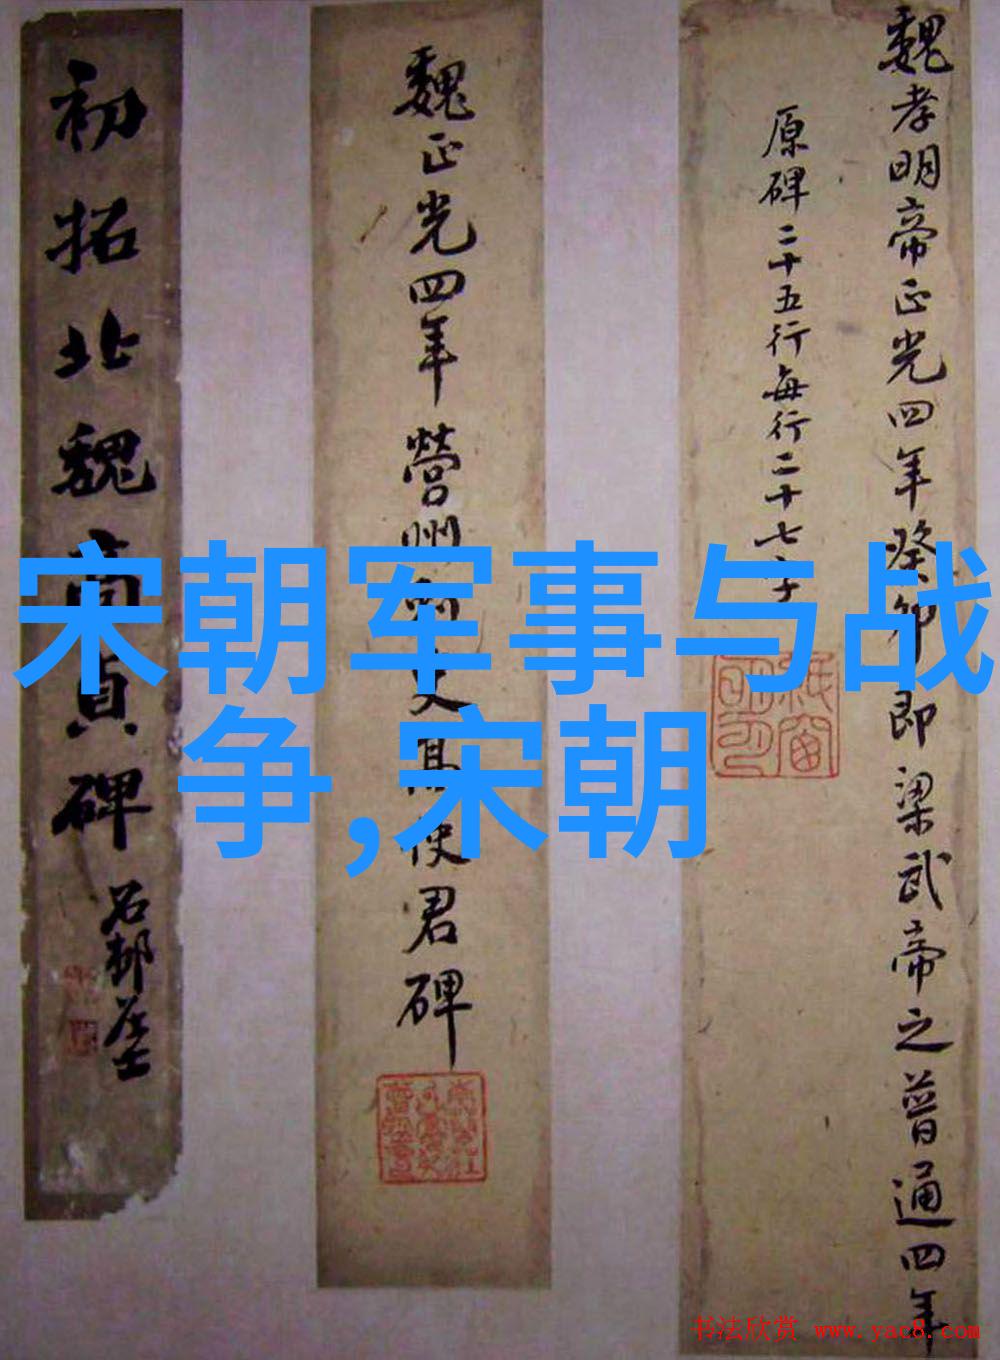 魏孝明帝正光四年癸卯即梁武帝之普通四年
原碑二十五行每行二十七字
魏正光四年营州刺史高使君碑
初拓北魏高貞碑
宋朝军事与战
争,宋朝
书法欣赏 www.yac8.com